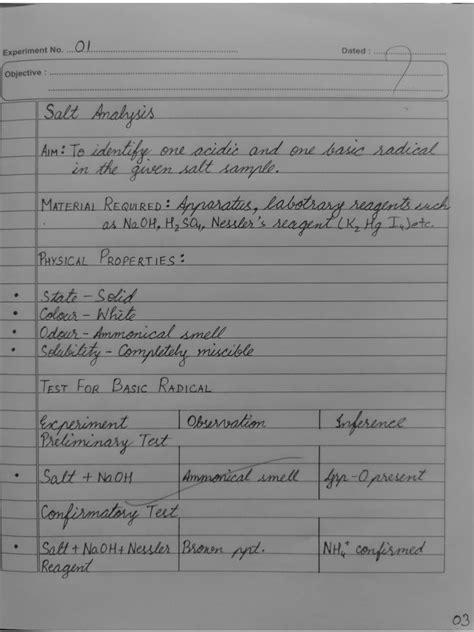 Experiment No. 01 Dated :
Objective :
Salt Analysis
AIM : To identify one acidic and one basic radical
in the given salt sample.
MATERIAL REQUIRED : Apparatus, labotrary reagents such
as NaOH, H₂SO₄, Nessler's reagent (K₂ Hg I₄) etc.
PHYSICAL PROPERTIES :
• State – Solid
• Colour – White
• Odour – Ammonical smell
• Solubility – Completely miscible
TEST FOR BASIC RADICAL
Experiment Observation Inference
Preliminary Test
• Salt + NaOH Ammonical smell grp – 0 present
Confirmatory Test
• Salt + NaOH + Nessler Brown ppt. NH₄⁺ confirmed
Reagent
03